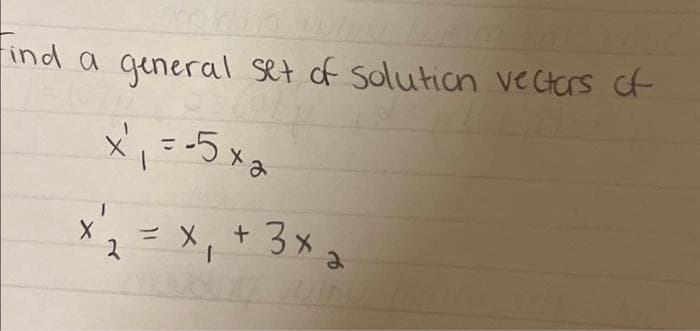 Find a general set of solution vectors of
x'₁ = -5x₂
x'₂ = x₁ + 3x₂